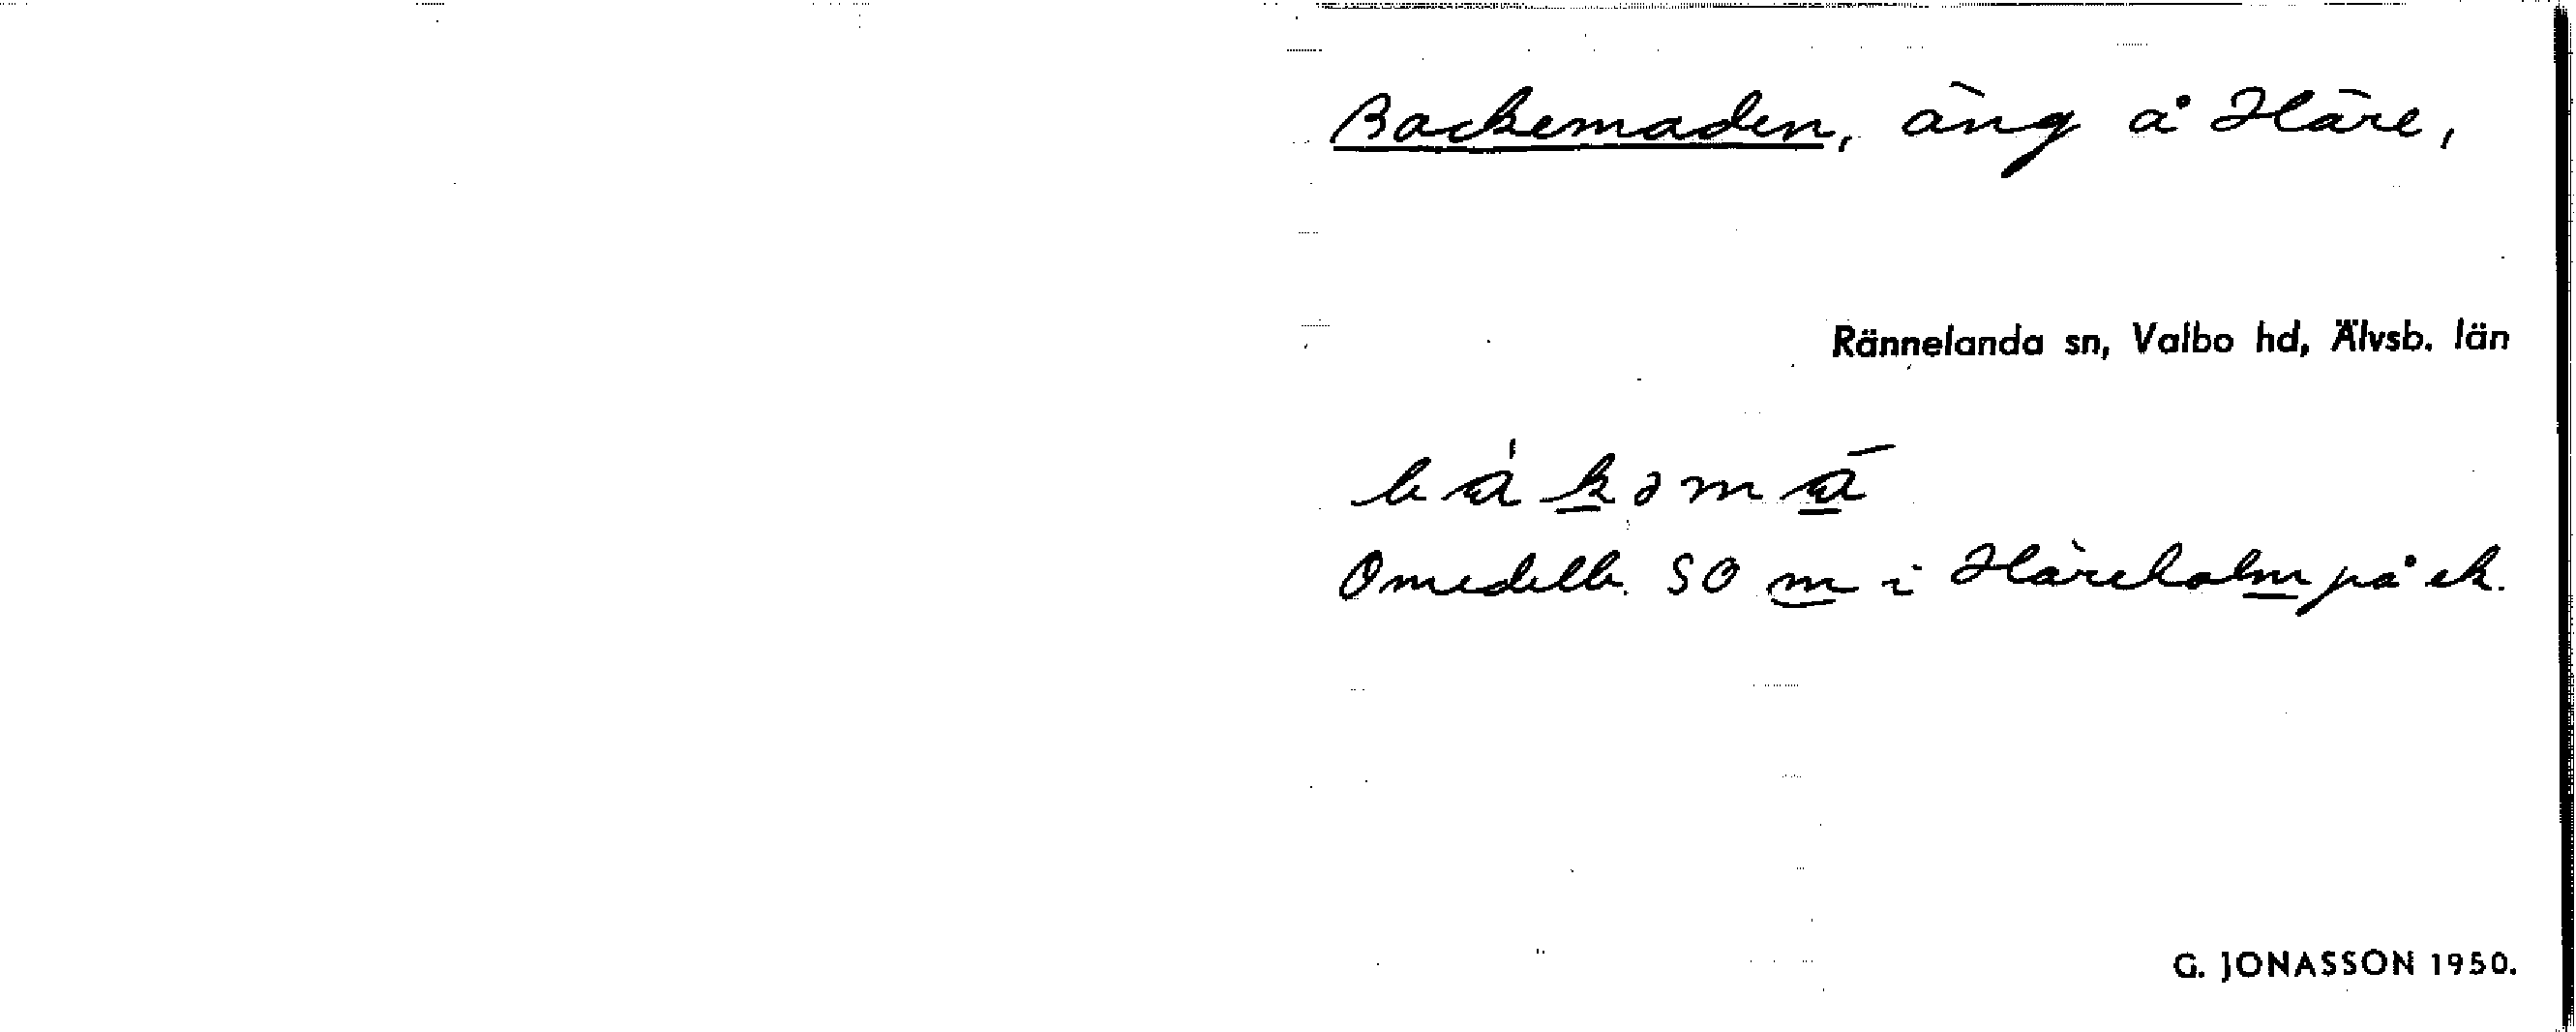 Backemaden, äng å Häre,
Rännelanda sn, Valbo hd, Älvsb. län
bàkəmā
Omedelb. SO m i Häreholm på ek.
G. JONASSON 1950.